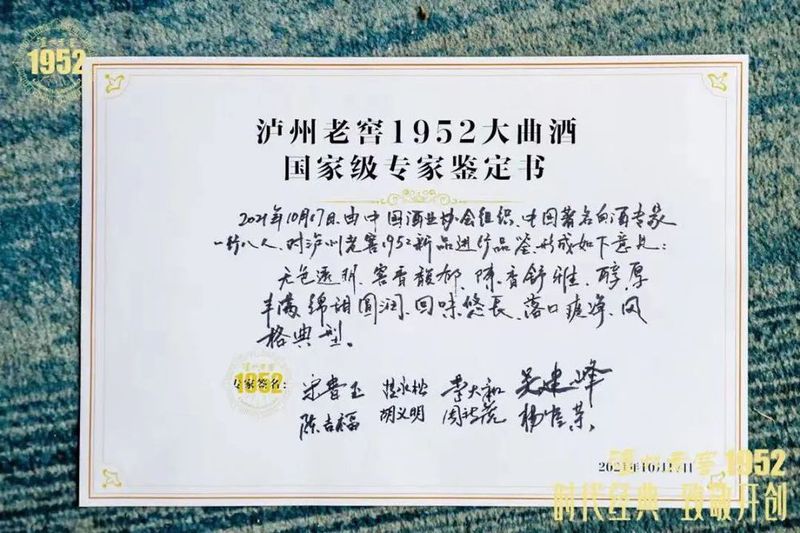 泸州老窖
1952
泸州老窖1952大曲酒
国家级专家鉴定书
2021年10月17日,由中国酒业协会组织,中国著名白酒专家
一行八人,对泸州老窖1952新品进行品鉴,形成如下意见:
无色透明、窖香馥郁、陈香舒雅、醇厚
丰满、绵甜圆润、回味悠长、落口爽净、风
格典型。
泸州老窖
1952
专家签名: 宋书玉 李大和 吴建峰
陈吉福 胡义明 杨官荣
2021年10月17日
泸州老窖 1952
时代经典 致敬开创